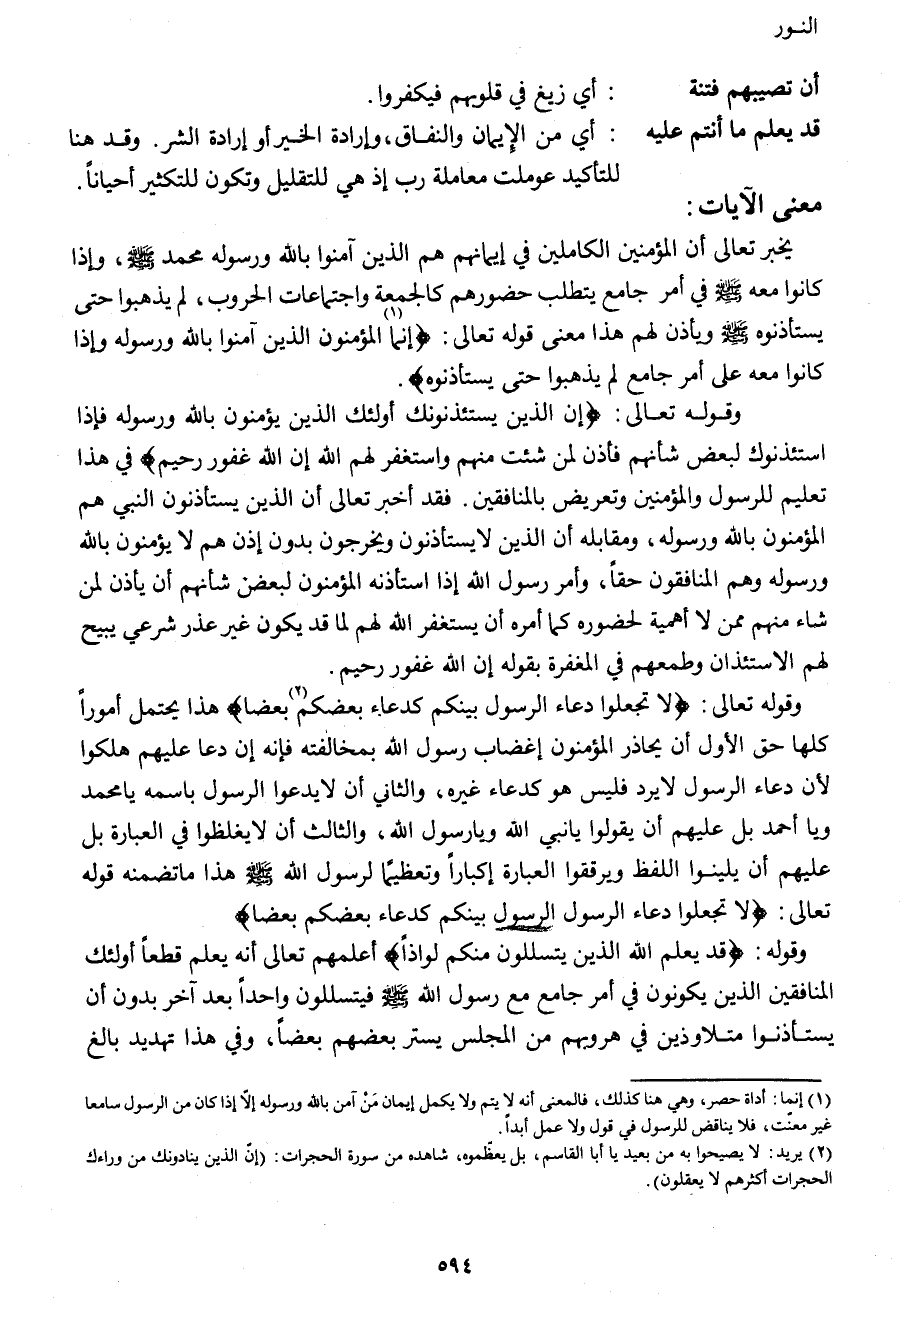 النور
أن تصيبهم فتنة : أي زيغ في قلوبهم فيكفروا.
قد يعلم ما أنتم عليه : أي من الإيمان والنفاق، وإرادة الخير أو إرادة الشر. وقد هنا
للتأكيد عوملت معاملة رب إذ هي للتقليل وتكون للتكثير أحياناً.
معنى الآيات :
يخبر تعالى أن المؤمنين الكاملين في إيمانهم هم الذين آمنوا بالله ورسوله محمد ﷺ، وإذا
كانوا معه ﷺ في أمر جامع يتطلب حضورهم كالجمعة واجتماعات الحروب، لم يذهبوا حتى
يستأذنوه ﷺ ويأذن لهم هذا معنى قوله تعالى: ﴿إنما(١) المؤمنون الذين آمنوا بالله ورسوله وإذا
كانوا معه على أمر جامع لم يذهبوا حتى يستأذنوه﴾.
وقوله تعالى: ﴿إن الذين يستئذنونك أولئك الذين يؤمنون بالله ورسوله فإذا
استئذنوك لبعض شأنهم فأذن لمن شئت منهم واستغفر لهم الله إن الله غفور رحيم﴾ في هذا
تعليم للرسول والمؤمنين وتعريض بالمنافقين. فقد أخبر تعالى أن الذين يستأذنون النبي هم
المؤمنون بالله ورسوله، ومقابله أن الذين لايستأذنون ويخرجون بدون إذن هم لا يؤمنون بالله
ورسوله وهم المنافقون حقاً، وأمر رسول الله إذا استأذنه المؤمنون لبعض شأنهم أن يأذن لمن
شاء منهم ممن لا أهمية لحضوره كما أمره أن يستغفر الله لهم لما قد يكون غير عذر شرعي يبيح
لهم الاستئذان وطمعهم في المغفرة بقوله إن الله غفور رحيم.
وقوله تعالى: ﴿لا تجعلوا دعاء الرسول بينكم كدعاء بعضكم(٢) بعضا﴾ هذا يحتمل أموراً
كلها حق الأول أن يحاذر المؤمنون إغضاب رسول الله بمخالفته فإنه إن دعا عليهم هلكوا
لأن دعاء الرسول لايرد فليس هو كدعاء غيره، والثاني أن لايدعوا الرسول باسمه يامحمد
ويا أحمد بل عليهم أن يقولوا يانبي الله ويارسول الله، والثالث أن لايغلظوا في العبارة بل
عليهم أن يلينوا اللفظ ويرققوا العبارة إكباراً وتعظيمًا لرسول الله ﷺ هذا ماتضمنه قوله
تعالى: ﴿لا تجعلوا دعاء الرسول الرسول بينكم كدعاء بعضكم بعضا﴾
وقوله: ﴿قد يعلم الله الذين يتسللون منكم لواذاً﴾ أعلمهم تعالى أنه يعلم قطعاً أولئك
المنافقين الذين يكونون في أمر جامع مع رسول الله ﷺ فيتسللون واحداً بعد آخر بدون أن
يستأذنوا متلاوذين في هروبهم من المجلس يستر بعضهم بعضاً، وفي هذا تهديد بالغ
(١) إنما: أداة حصر، وهي هنا كذلك، فالمعنى أنه لا يتم ولا يكمل إيمان مَنْ آمن بالله ورسوله إلّا إذا كان من الرسول سامعا
غير معنّت، فلا يناقض للرسول في قول ولا عمل أبداً.
(٢) يريد: لا يصيحوا به من بعيد يا أبا القاسم، بل يعظّموه، شاهده من سورة الحجرات: (إنّ الذين ينادونك من وراءك
الحجرات أكثرهم لا يعقلون).
٥٩٤